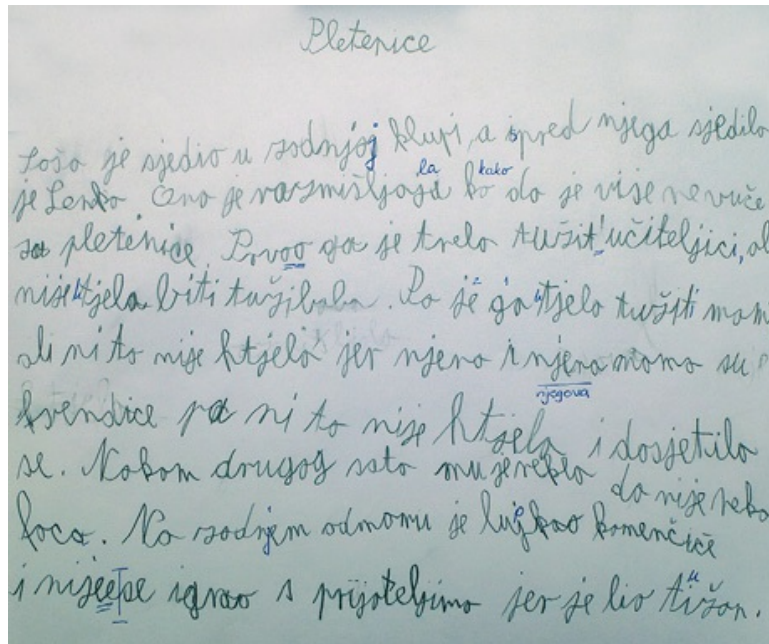 Pletenice
Joso je sjedio u zadnjoj klupi, a ispred njega sjedila
je Lenka. Ona je razmišljala kako da je više ne vuče
za pletenice. Prvoo ga je trela tužit učiteljici, al
nije htjela biti tužibaba. Pa je ga htjela tužiti mam
ali ni to nije htjela jer njena i njena mama su
njegova
frendice pa ni to nije htjela i dosjetila
se. Nakom drugog sata mu je rekla da nije neka
faca. Na zadnjem odmomu je lupkao kamenčiće
i nijeese igrao s prijateljima jer je bio tužan.